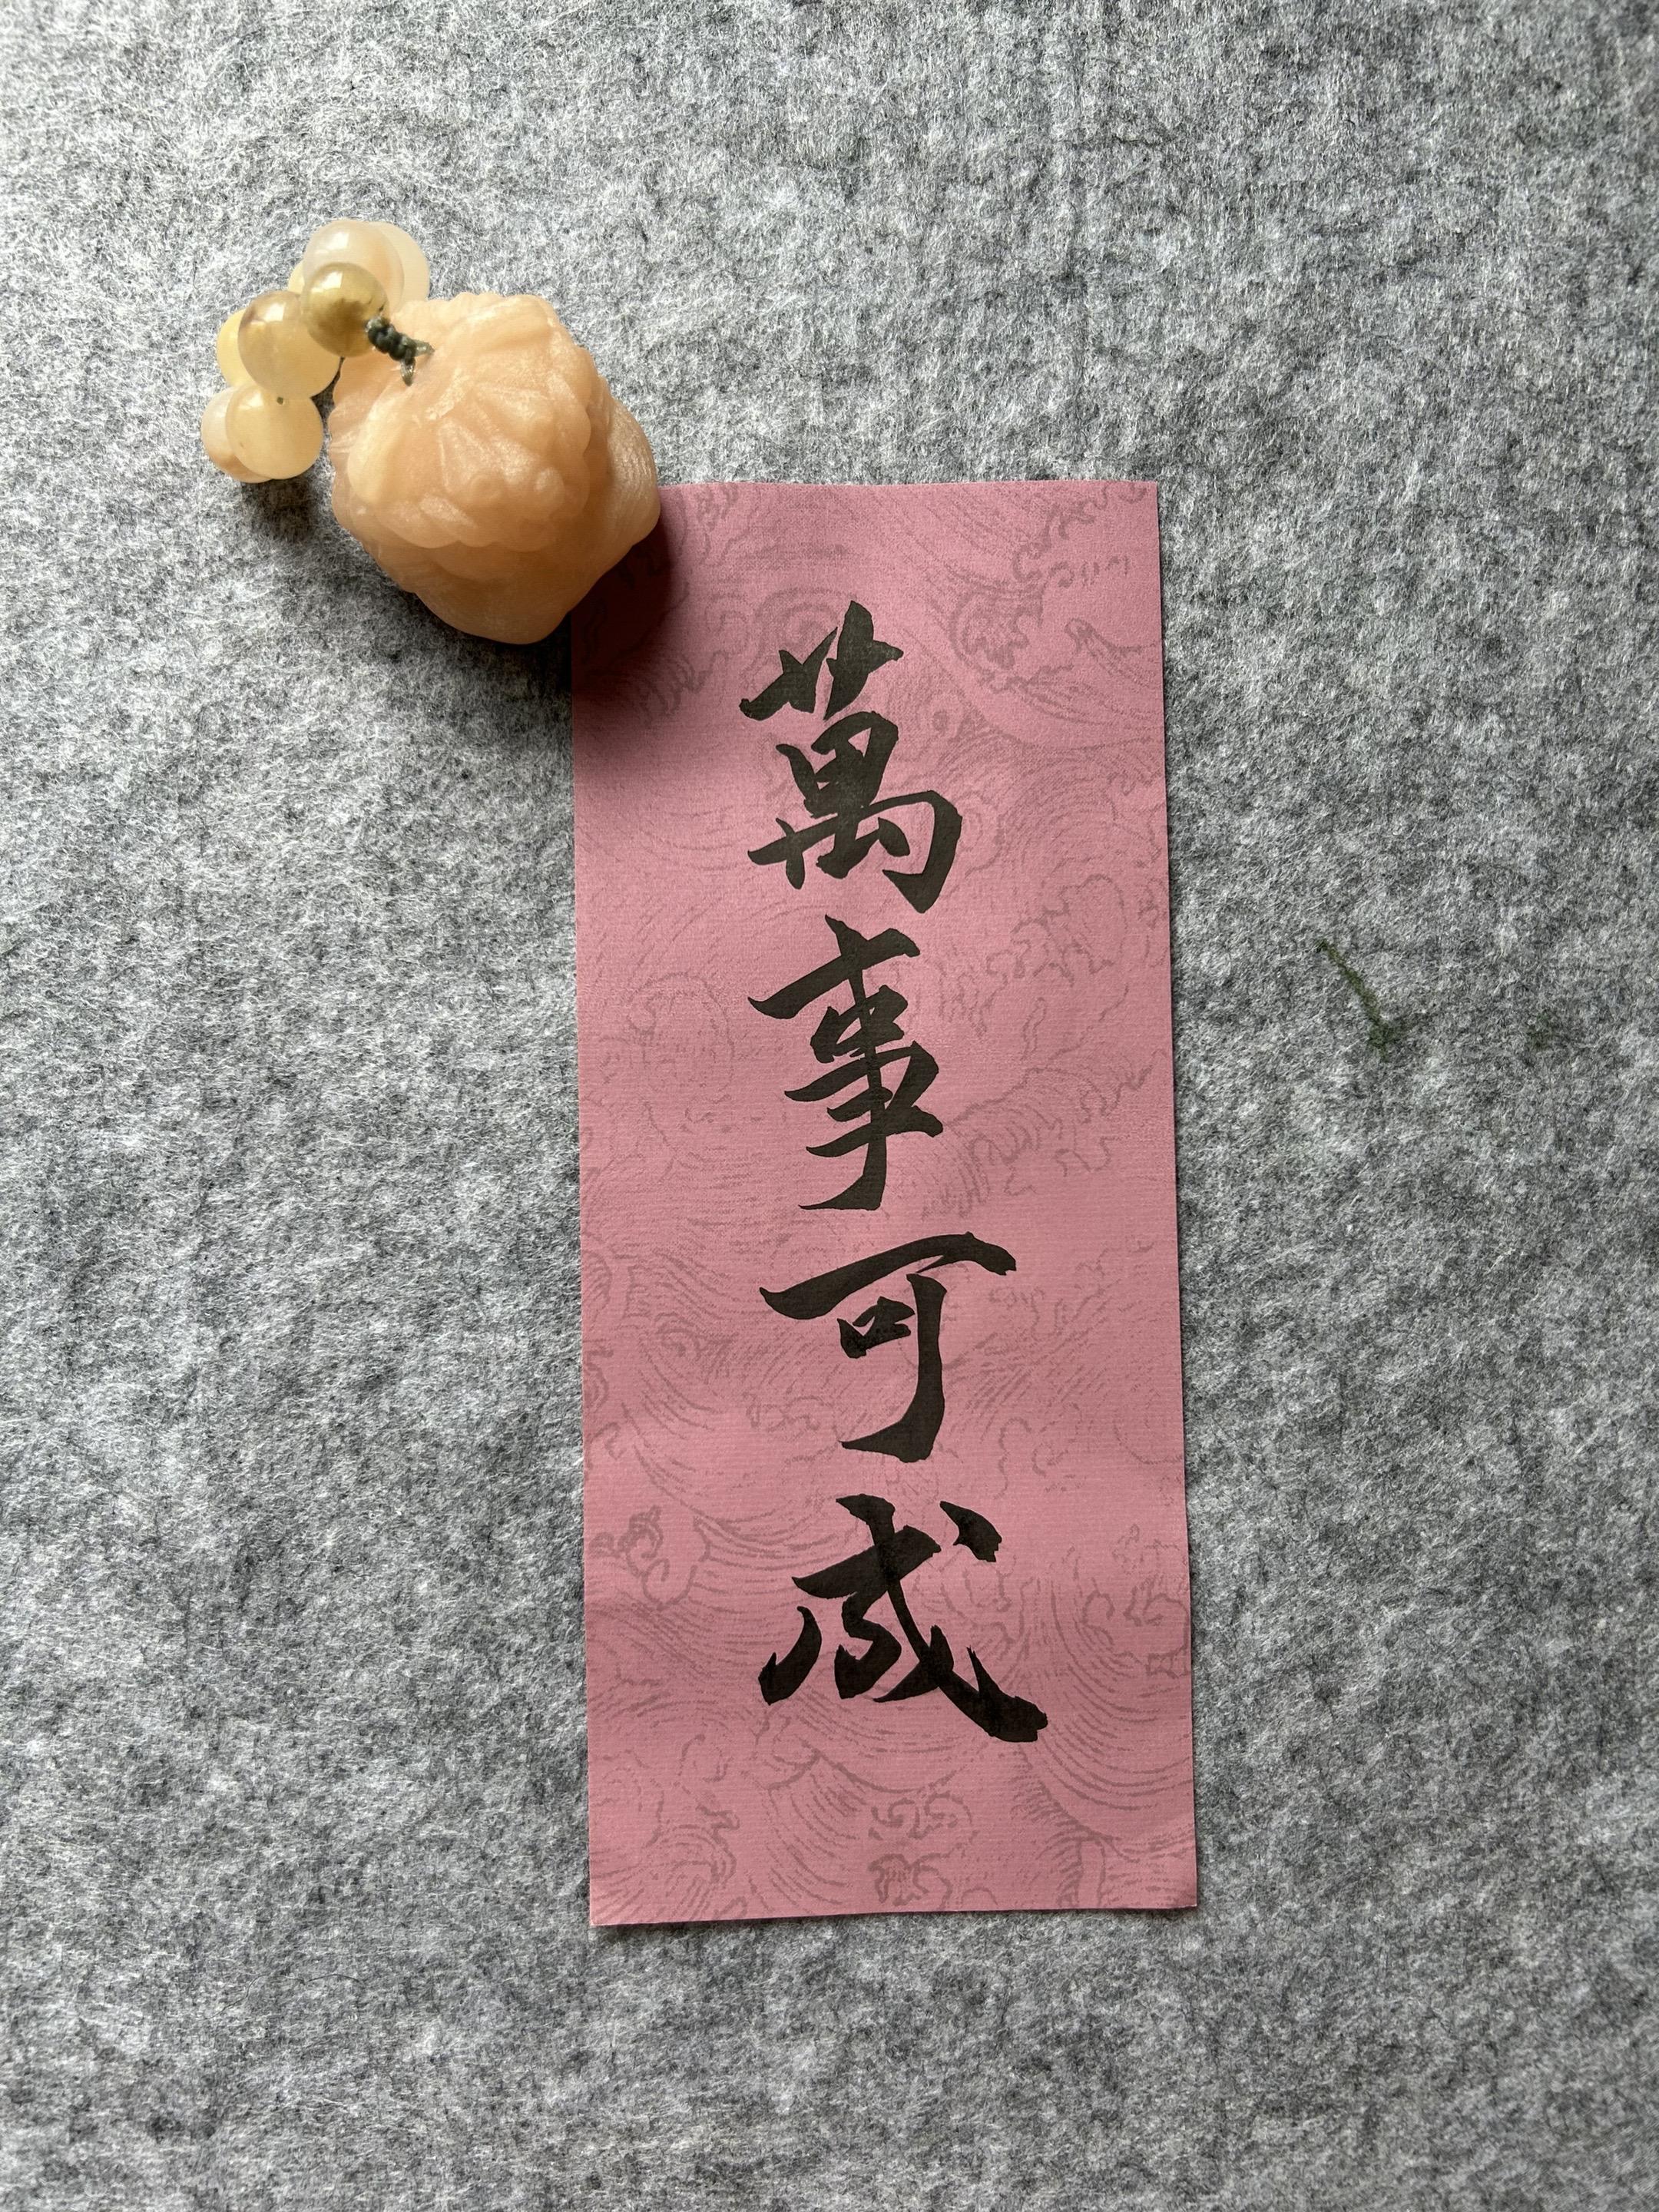 萬事可成